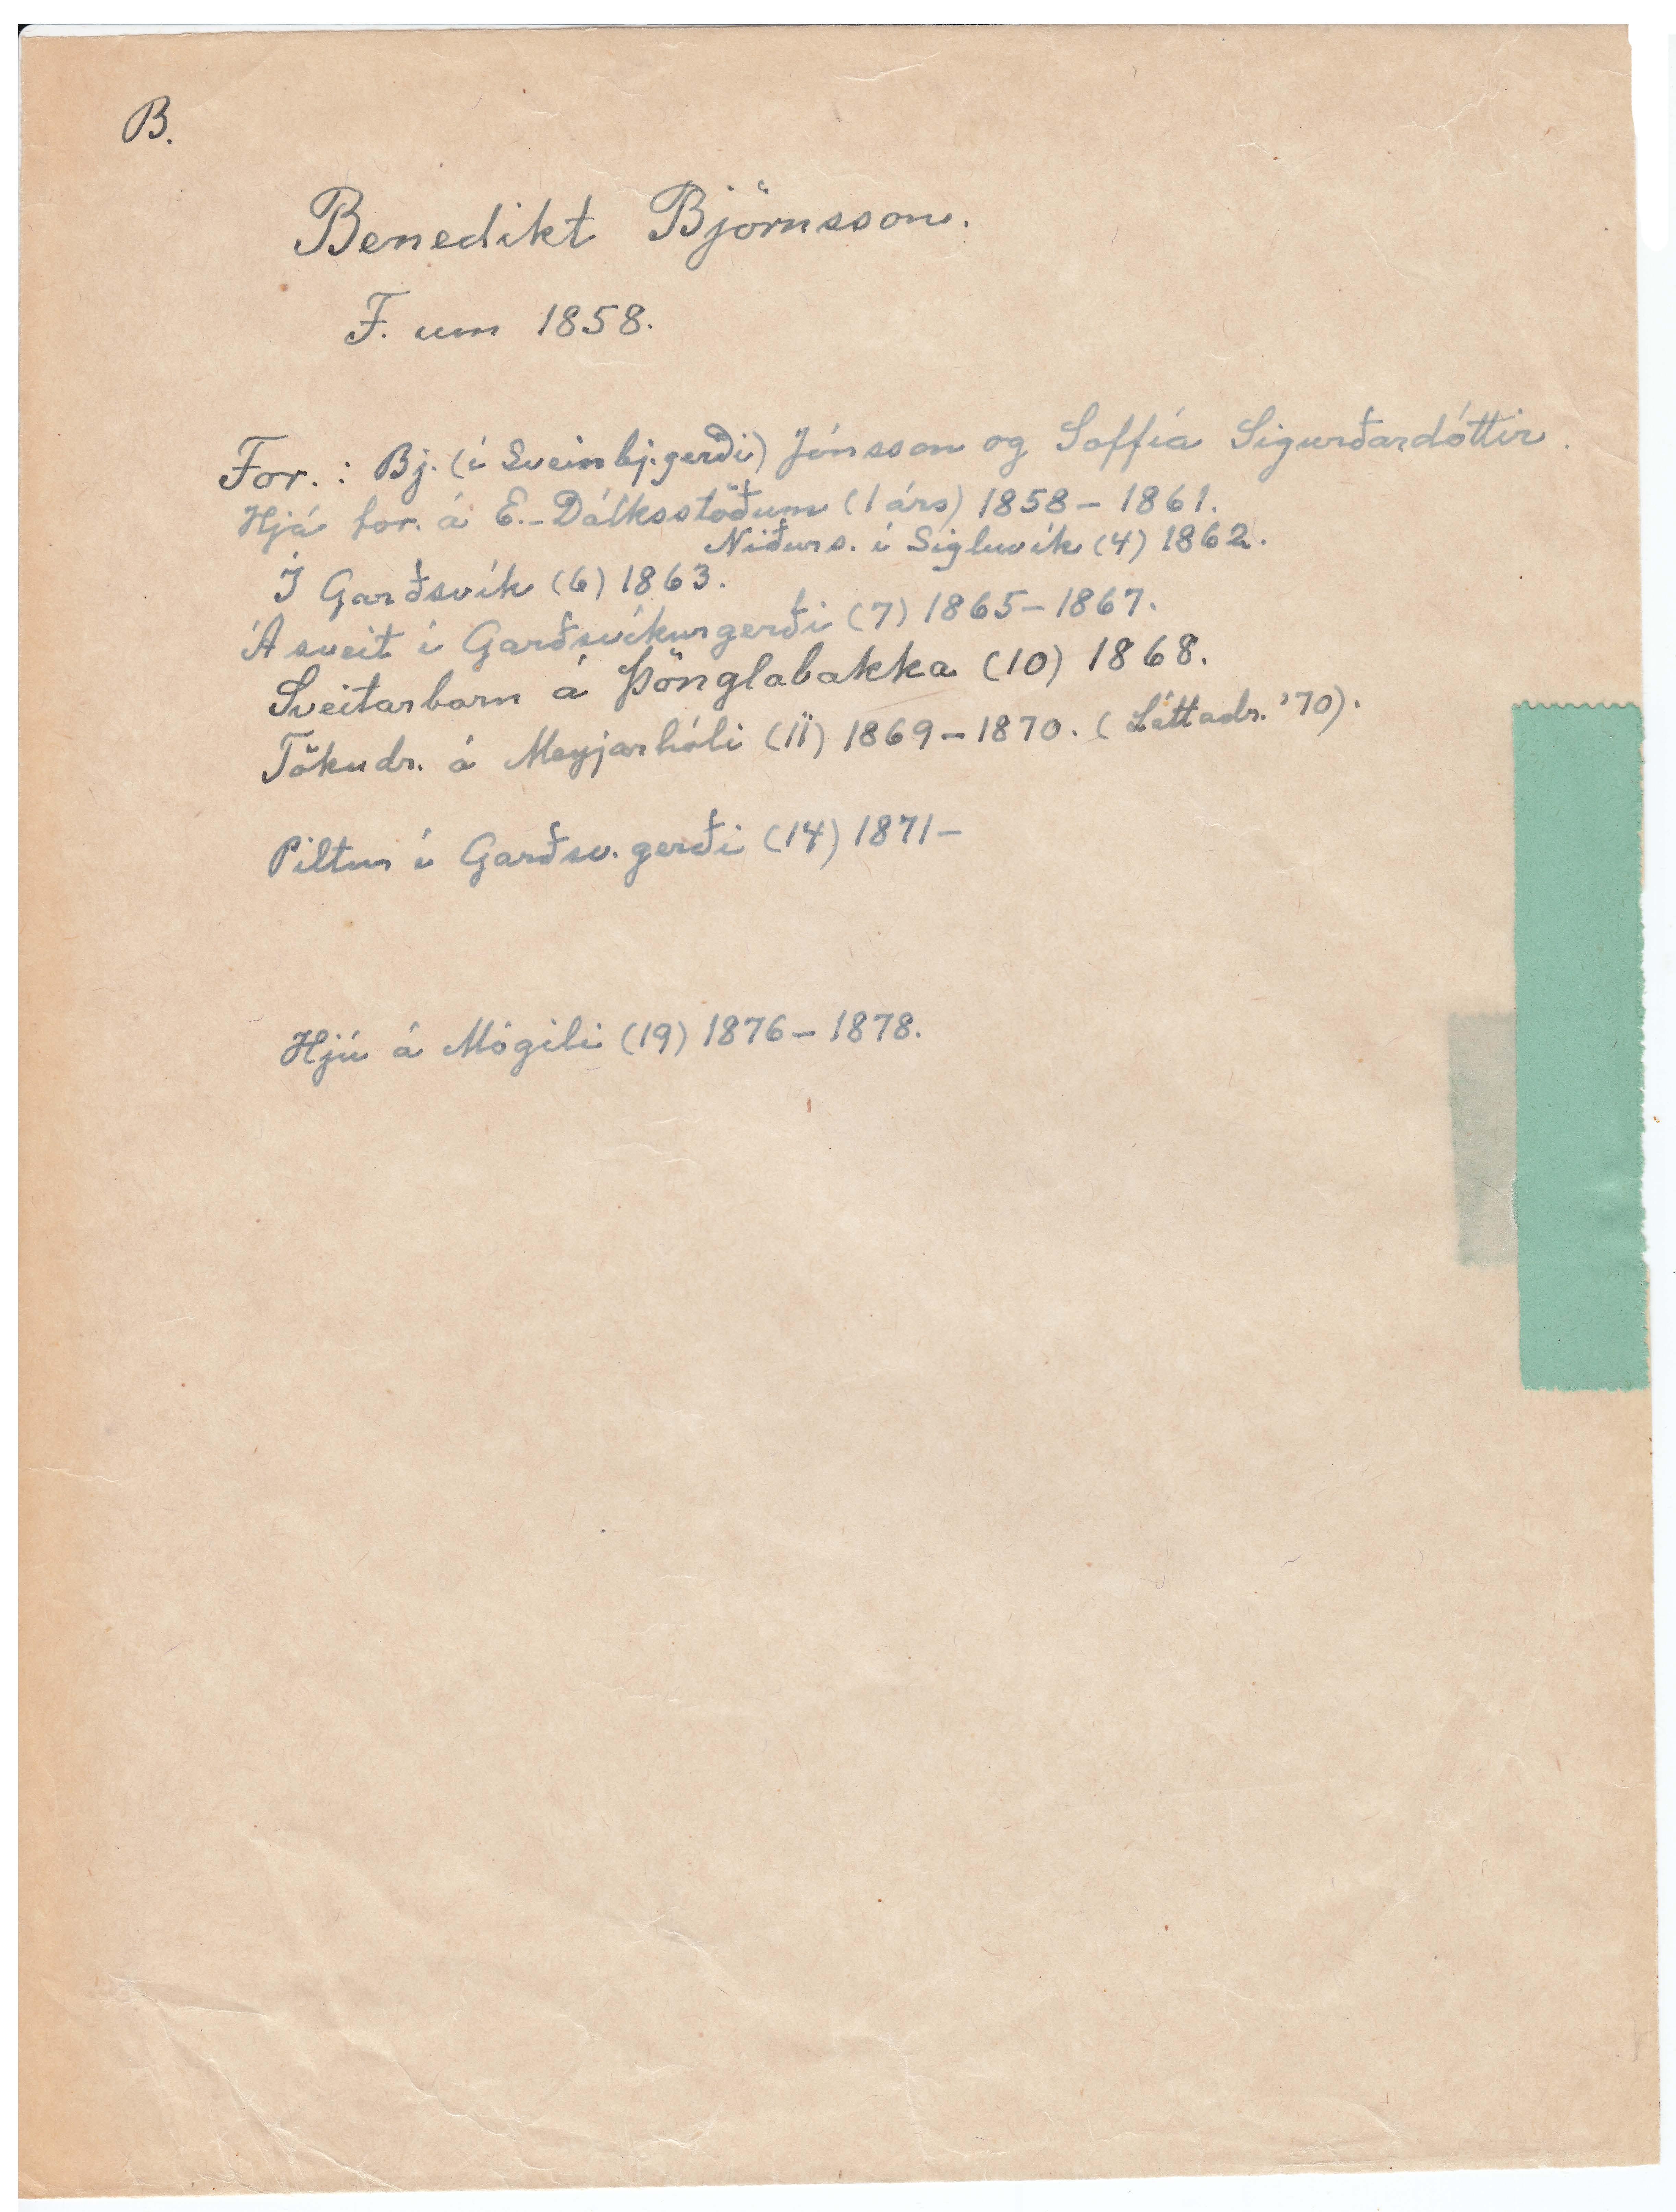 B.
Benedikt Björnsson.
F. um 1858.
For.: Bj. (í Sveinbj.gerði) Jónsson og Soffía Sigurðardóttir.
Hjá for. á E.-Dálksstöðum (1 árs) 1858-1861.
Niðurs. í Sigluvík (4) 1862.
Í Garðsvík (6) 1863.
Á sveit í Garðsvíkurgerði (7) 1865-1867.
Sveitarbarn á Þönglabakka (10) 1868.
Tökudr. á Meyjarhóli (11) 1869-1870. (Léttadr. '70).
Piltur í Garðsv.gerði (14) 1871-
Hjú á Mógili (19) 1876-1878.